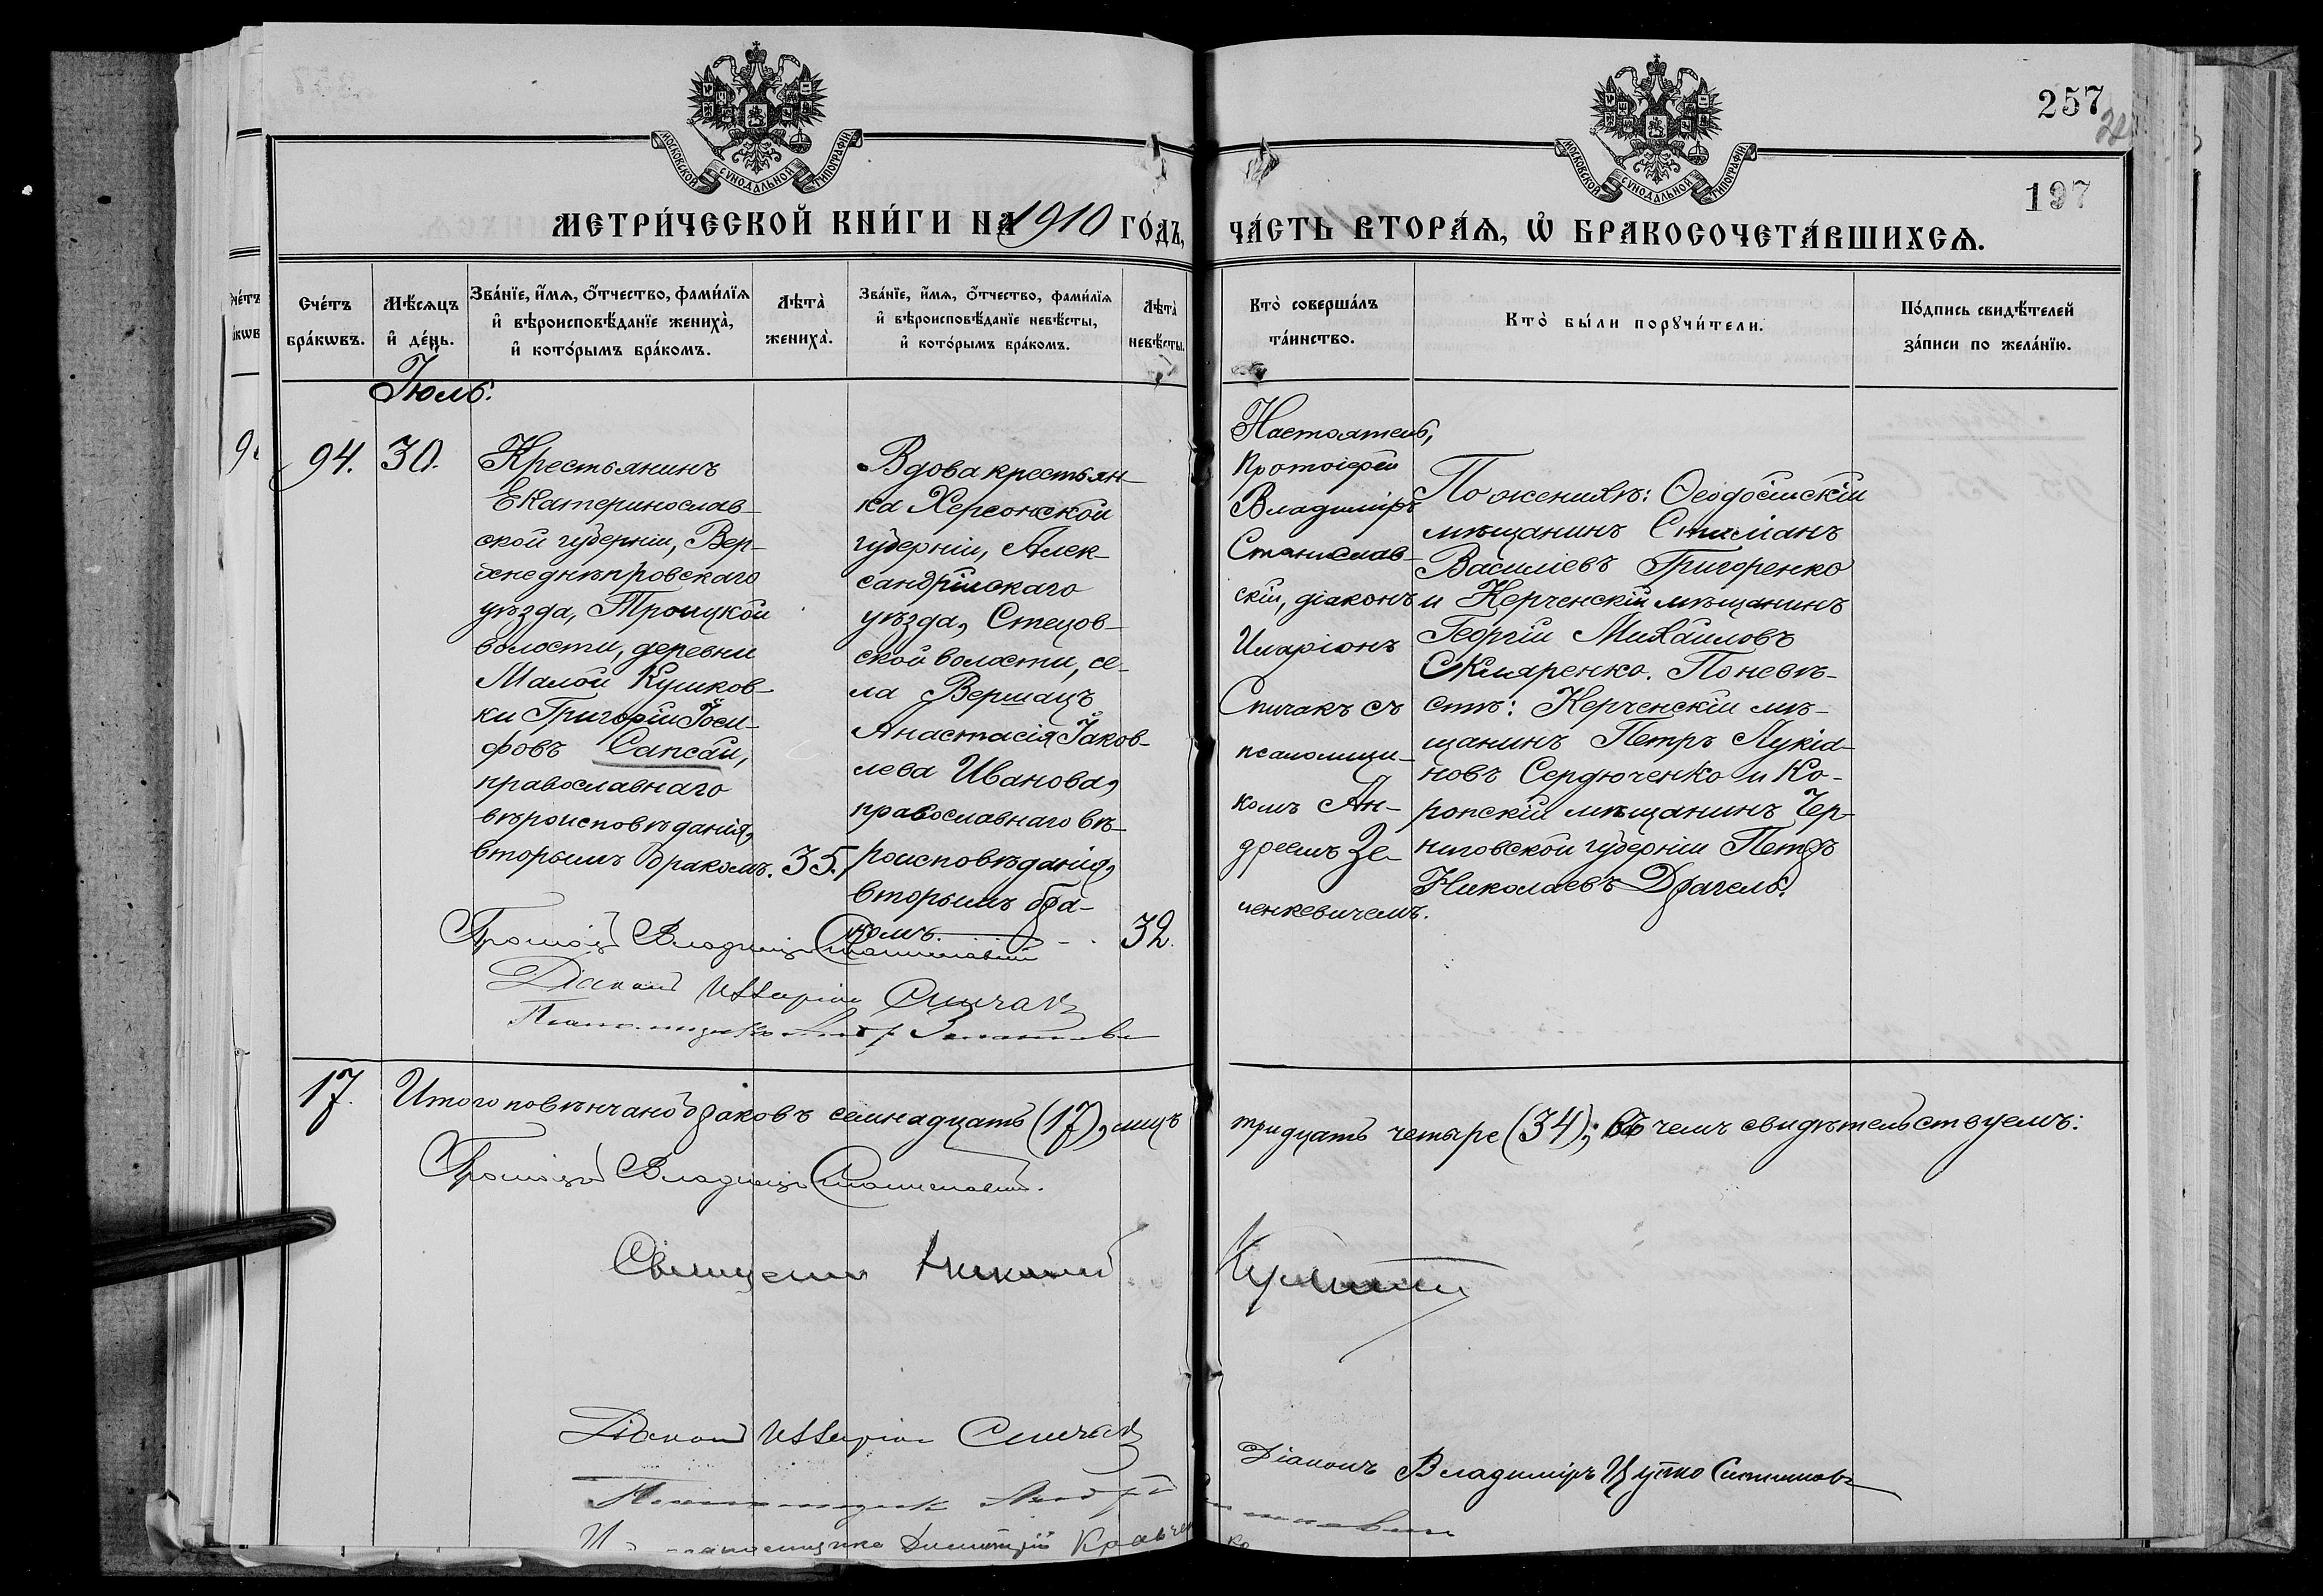 257
197
МОСКОВСКОЙ СѴНОДАЛЬНОЙ ТИПОГРАФІИ
МОСКОВСКОЙ СѴНОДАЛЬНОЙ ТИПОГРАФІИ
МЕТРИ́ЧЕСКОЙ КНИ́ГИ НА 1910 ГО́ДЪ,
ЧА́СТЬ ВТОРА́Ѧ, Ѡ҆ БРАКОСОЧЕТА́ВШИХСѦ.
Сче́тъ
бра́кѡвъ.
Мѣ́сѧцъ
и҆ де́нь.
Зва́нїе, и҆́мѧ, ѻ҆́тчество, фами́лїѧ
и҆ вѣроисповѣ́данїе жениха̀,
и҆ кото́рымъ бра́комъ.
Лѣта̀
жениха̀.
Зва́нїе, и҆́мѧ, ѻ҆́тчество, фами́лїѧ
и҆ вѣроисповѣ́данїе невѣ́сты,
и҆ кото́рымъ бра́комъ.
Лѣта̀
невѣ́сты.
Кто̀ соверша́лъ
та́инство.
Кто̀ бы́ли порꙋчи́тели.
По́дпись свидѣ́телей
за́писи по жела́нїю.
Іюль.
94.
30.
Крестьянинъ
Екатеринослав-
ской губерніи, Вер-
хнеднѣпровскаго
уѣзда, Троицкой
волости, деревни
Малой Кушков-
ки Григорій Іоси-
фовъ Сапсай,
православнаго
вѣроисповѣданія,
вторымъ бракомъ.
35.
Вдова крестьян-
ка Херсонской
губерніи, Алек-
сандрійскаго
уѣзда, Стецов-
ской волости, се-
ла Вершацъ
Анастасія Іаков-
лева Иванова,
православнаго вѣ-
роисповѣданія,
вторымъ бра-
комъ.
32.
Настоятель,
Протоіерей
Владиміръ
Станислав-
скій, діаконъ
Иларіонъ
Спичакъ съ
псаломщи-
комъ Ан-
дреемъ Зе-
ленкевичемъ.
По женихѣ: Ѳеодосійскій
мѣщанинъ Стиліанъ
Василіевъ Григоренко
и Керченскій мѣщанинъ
Георгій Михаиловъ
Скляренко. По невѣ-
стѣ: Керченскій мѣ-
щанинъ Петръ Лукіа-
новъ Сердюченко и Ко-
ропскій мѣщанинъ Чер-
ниговской губерніи Петръ
Николаевъ Драгель.
Протоіерей Владиміръ Станиславскій
Діаконъ Иларіонъ Спичакъ
17.
Итого повѣнчано браковъ семнадцать (17), лицъ
тридцать четыре (34); въ чемъ свидѣтельствуемъ:
Протоіерей Владиміръ Станиславскій.
Священникъ Николай
Діаконъ Иларіонъ Спичакъ
Діаконъ Владиміръ
Псаломщикъ Андрей
псаломщика Димитрій Кравченко